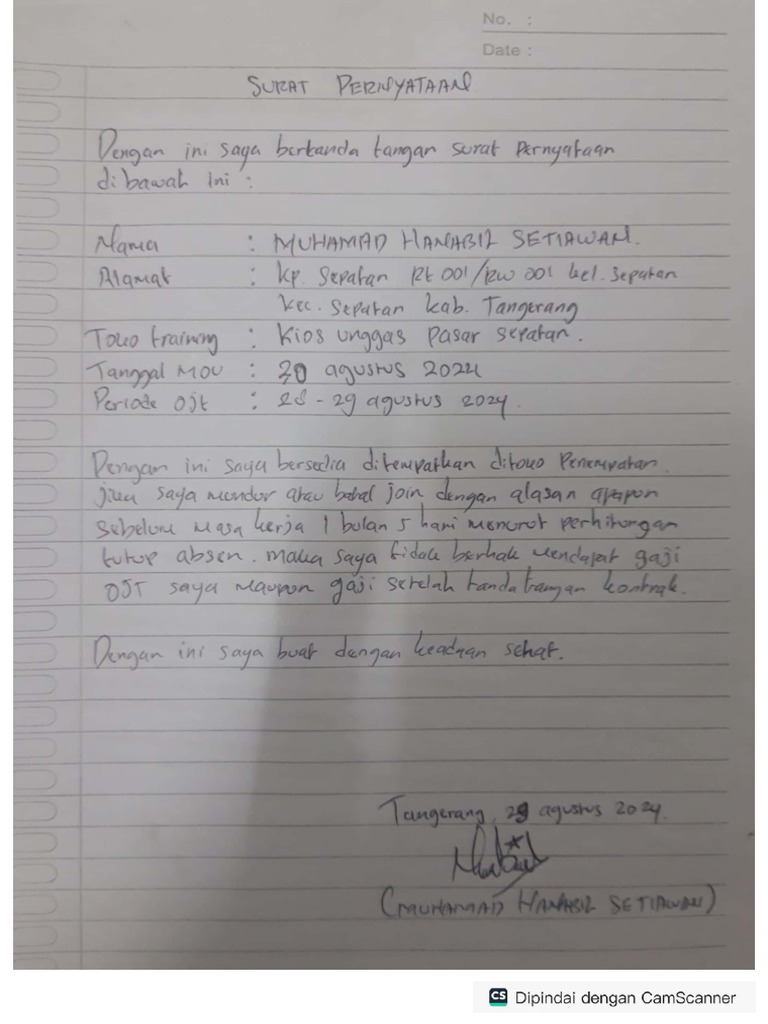 No. :
Date :
SURAT PERNYATAAN
Dengan ini saya bertanda tangan surat Pernyataan
dibawah ini :
Nama : MUHAMAD HANABIL SETIAWAN.
Alamat : kp. Sepatan Rt 001/RW 001 kel. Sepatan
kec. Sepatan kab. Tangerang
Toko training : Kios unggas Pasar sepatan.
Tanggal MOU : 30 agustus 2024
Periode Ojt : 28 - 29 agustus 2024.
Dengan ini saya bersedia ditempatkan ditoko Penempatan.
jika saya mundur atau batal join dengan alasan apapun
sebelum masa kerja 1 bulan 5 hari menurut perhitungan
tutup absen. maka saya tidak berhak mendapat gaji
OJT saya maupun gaji setelah tanda tangan kontrak.
Dengan ini saya buat dengan keadaan sehat.
Tangerang, 29 agustus 2024.
(MUHAMAD HANABIL SETIAWAN)
CS Dipindai dengan CamScanner